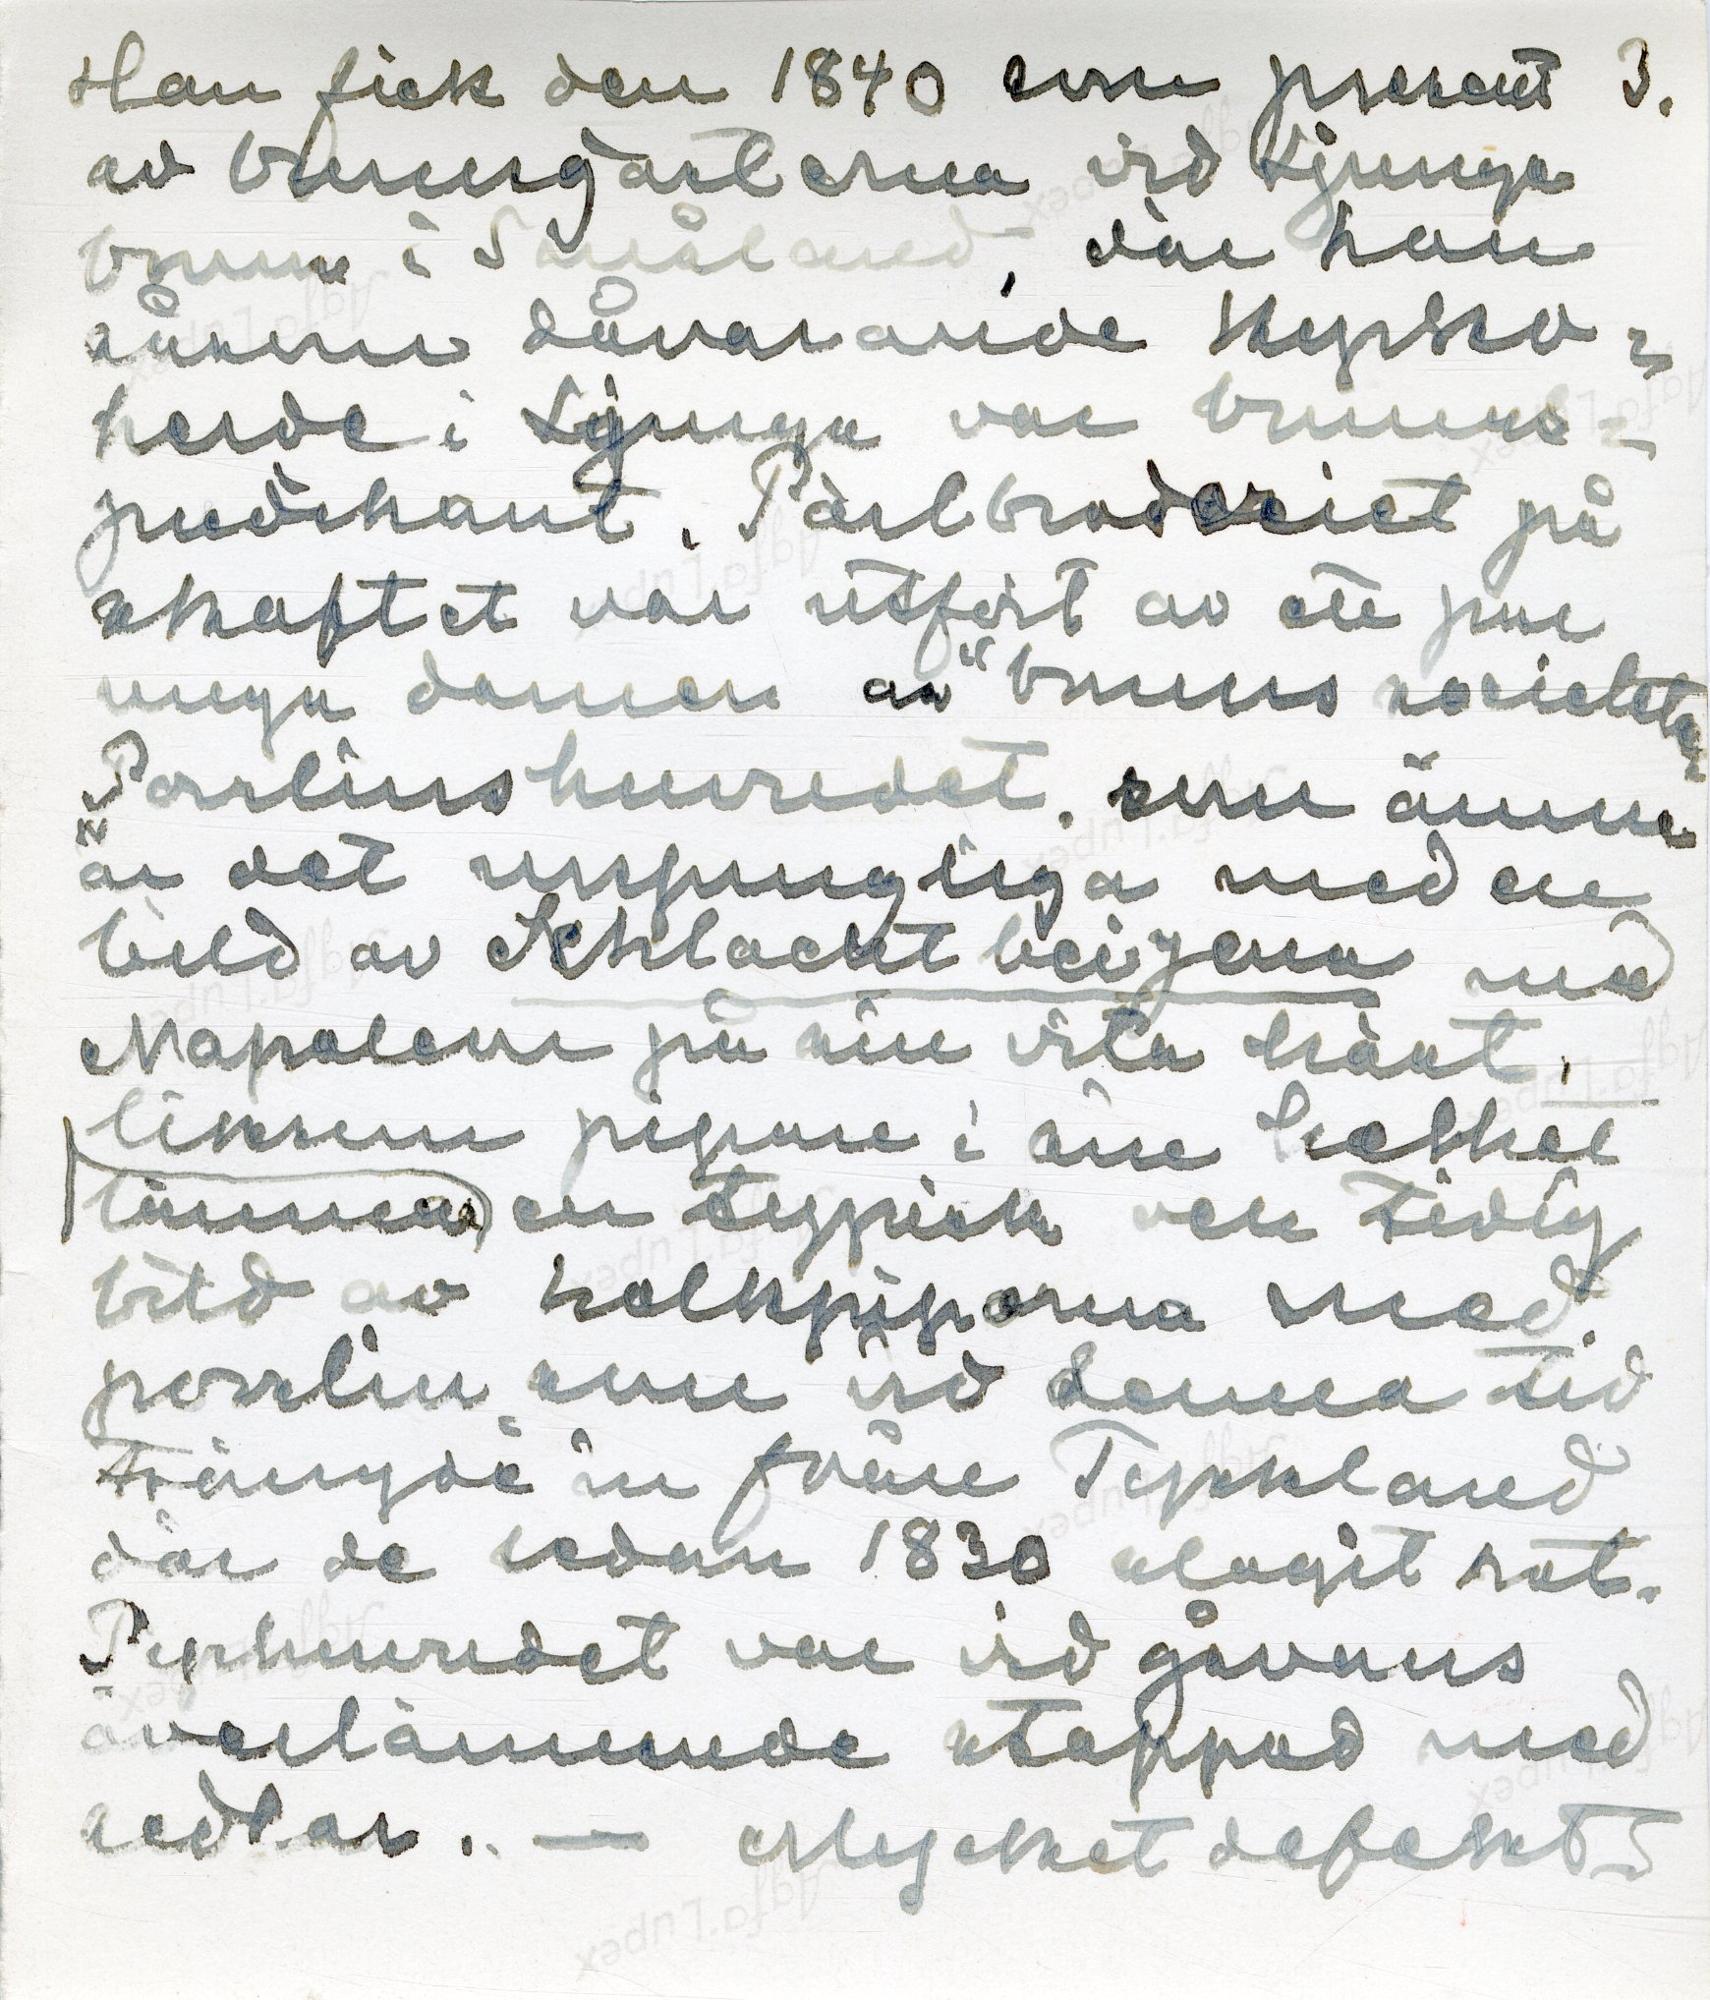 Han fick den 1840 som present 3.
av brunnsgästerna vid Ljunga
brunn i Småland, där han
såsom dåvarande kyrko-
herde i Ljunga var brunns-
predikant. Pärlbroderiet på
skaftet var utfört av ett par
unga damer av "brunns societeten
Porslinshuvudet, som ännu
är det ursprungliga med en
bild av Schlacht bei Jena med
Napoleon på sin vita häst,
liksom pipan i sin
en typisk och tidig
bild av kolkpiporna med
porslin som vid denna tid
trängde in från Tyskland
där de sedan 1830 slagit rot.
Piphuvudet var vid gåvans
överlämnende stoppad med
sedlar. — Mycket defekt